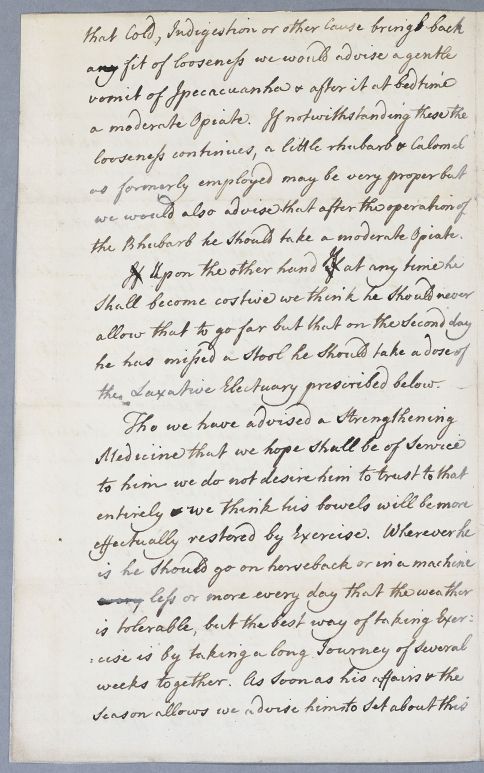 that Cold, Indigestion or other Cause brings back
any fit of looseness we would advise a gentle
vomit of Ipecacuanha & after it at bedtime
a moderate Opiate. If notwithstanding these the
looseness continues, a little rhubarb & Calomel
as formerly employed may be very proper but
we would also advise that after the operation of
the Rhubarb he should take a moderate Opiate.
If Upon the other hand If at any time he
shall become costive we think he should never
allow that to go far but that on the second day
he has missed a stool he should take a dose of
the Laxative Electuary prescribed below.
Tho we have advised a strengthening
Medicine that we hope shall be of service
to him we do not desire him to trust to that
entirely & we think his bowels will be more
effectually restored by Exercise. Wherever he
is he should go on horseback or in a machine
every less or more every day that the weather
is tolerable, but the best way of taking Exer:
:cise is by taking a long Journey of several
weeks together. As soon as his affairs & the
season allows we advise him to set about this